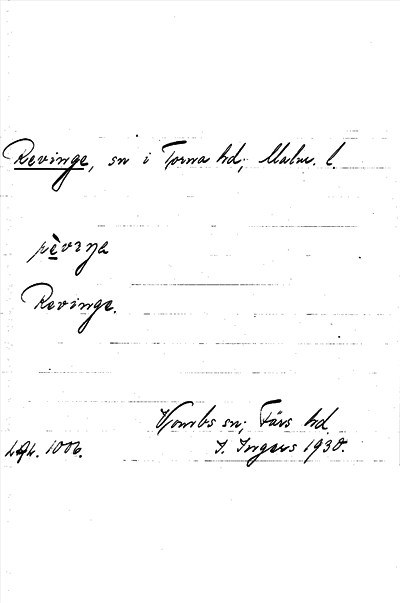 Revinge, sn i Torna hd, Malm. l.
rèvıŋa
Revinge.
Vombs sn; Färs hd.
I. Ingers 1938.
1006.